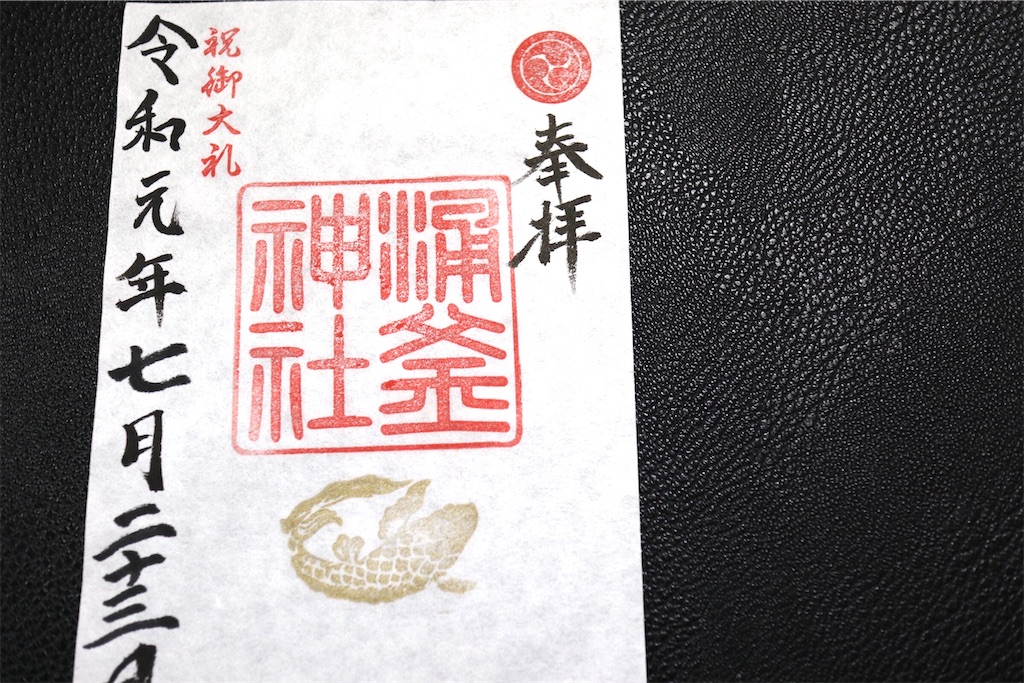 奉拝
涌釜
神社
祝御大礼
令和元年七月二十三日